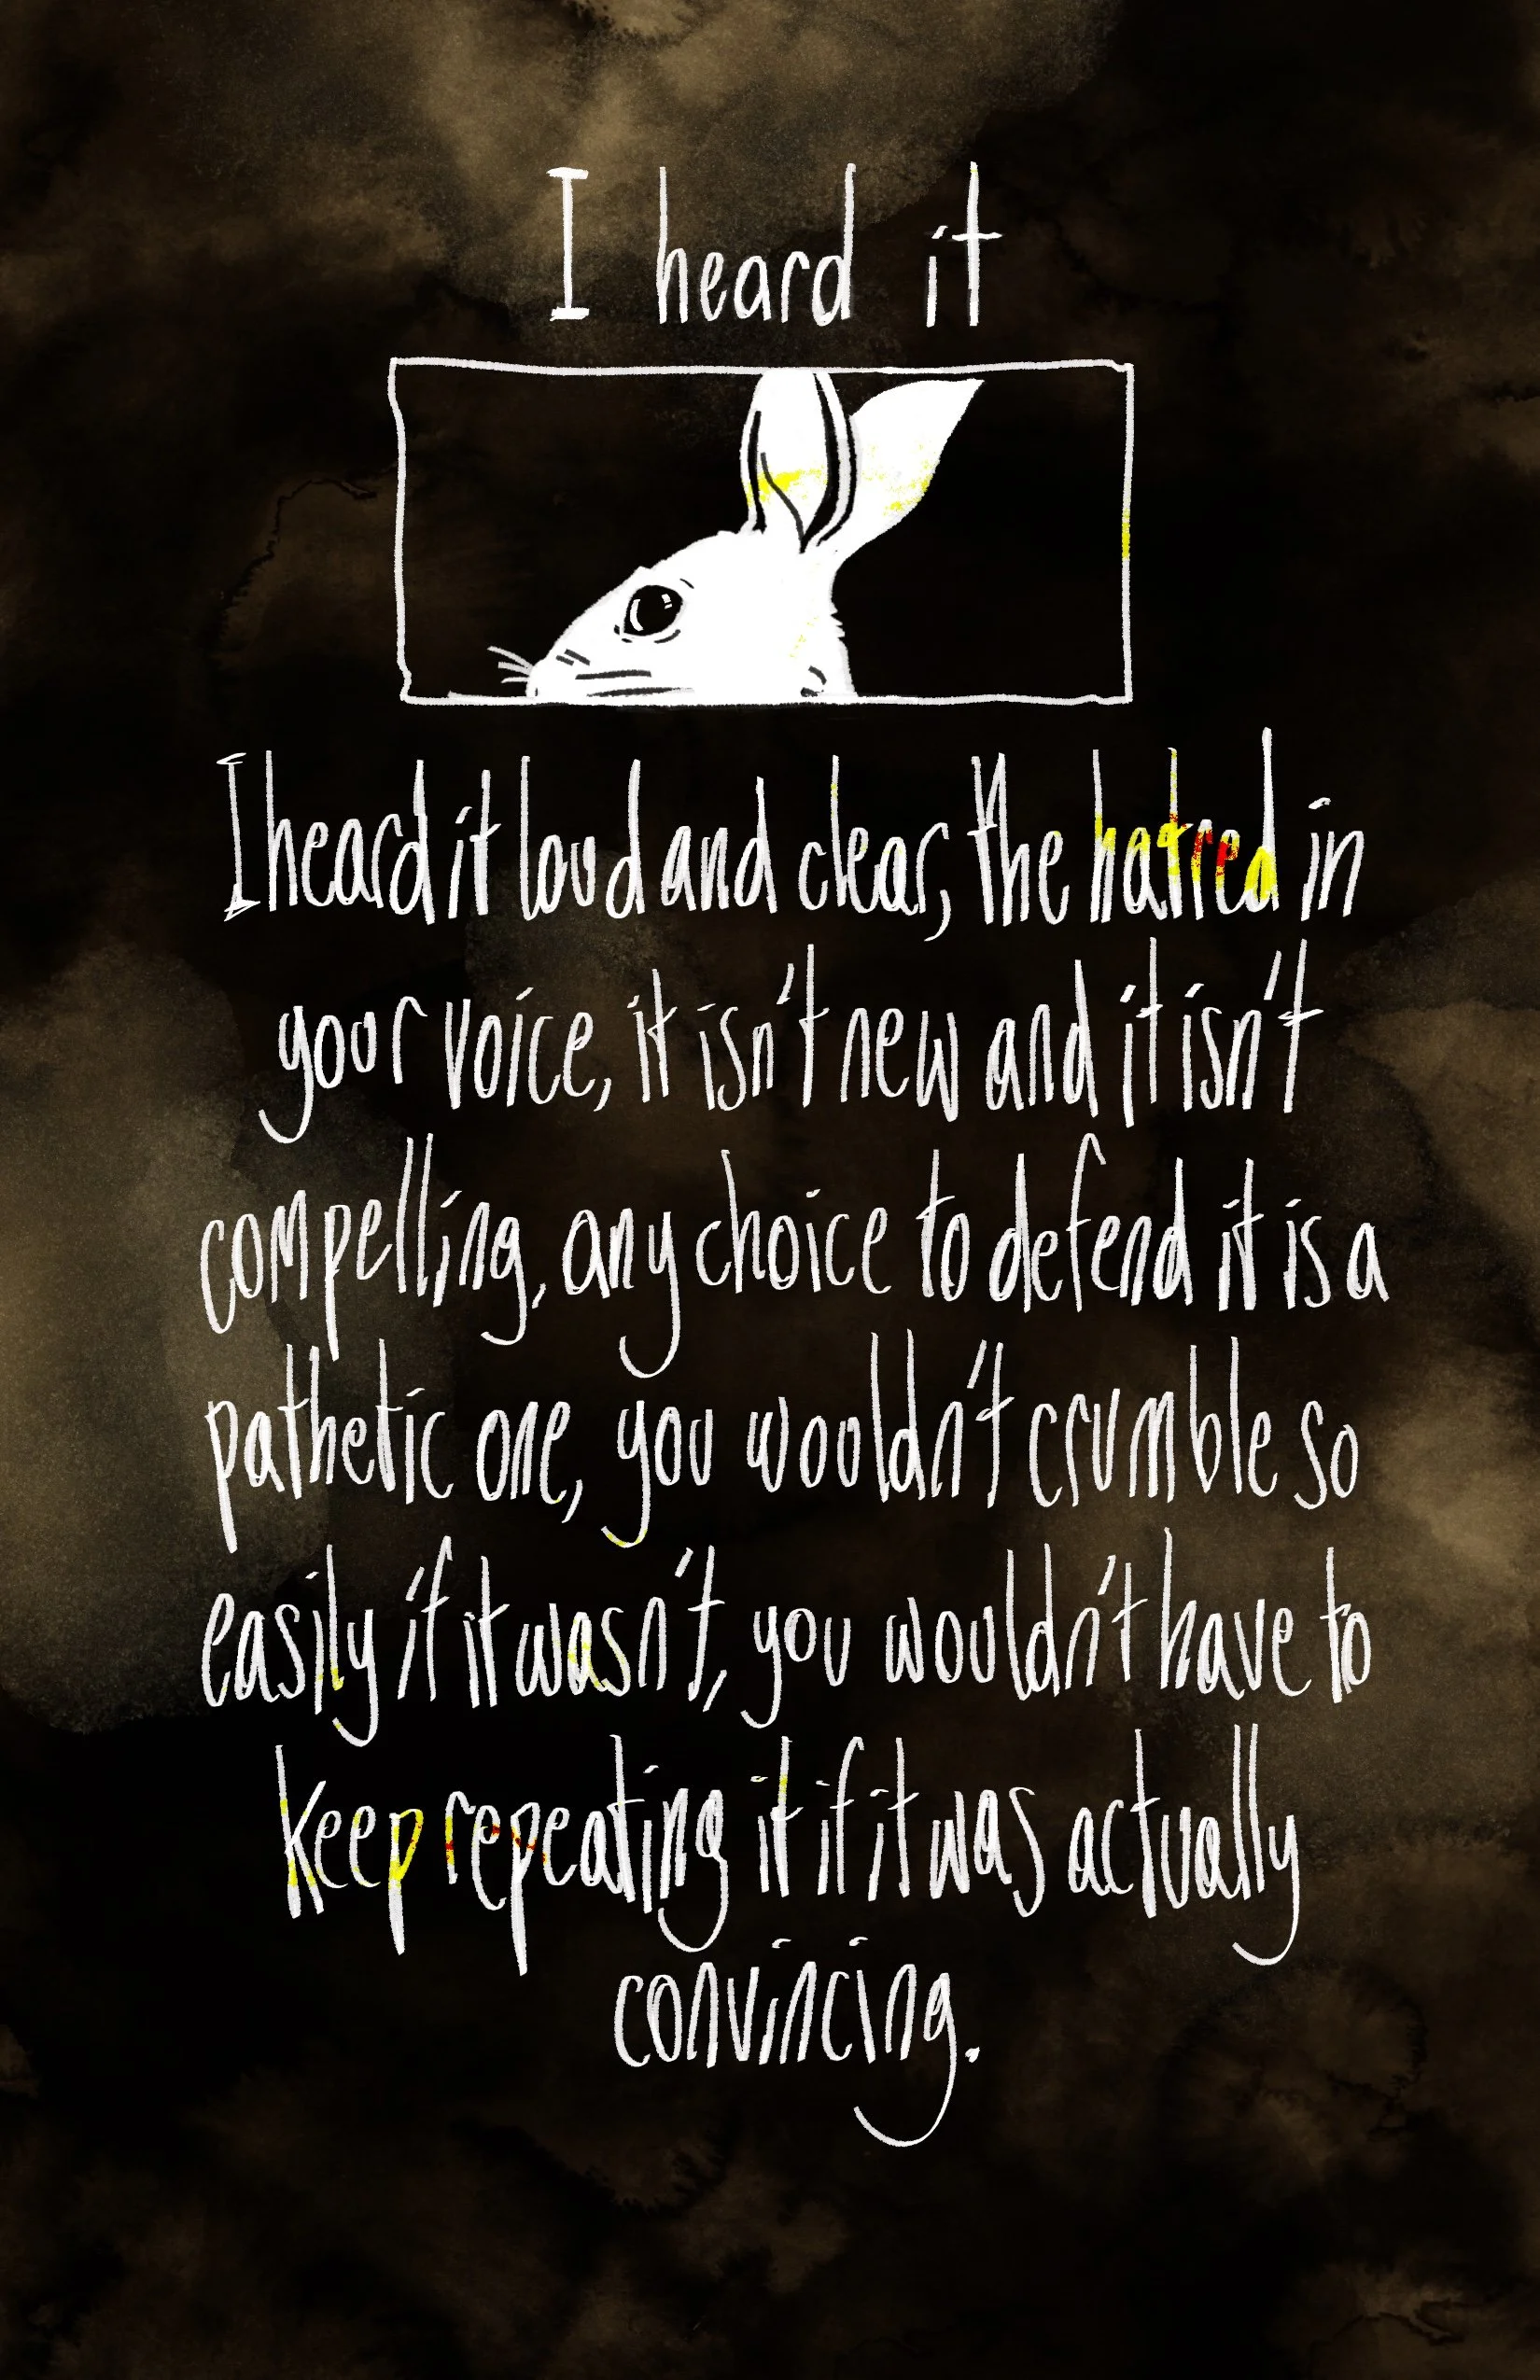 I heard it
I heard it loud and clear, the hatred in
your voice, it isn't new and it isn't
compelling, any choice to defend it is a
pathetic one, you wouldn't crumble so
easily if it wasn't, you wouldn't have to
keep repeating it if it was actually
convincing.